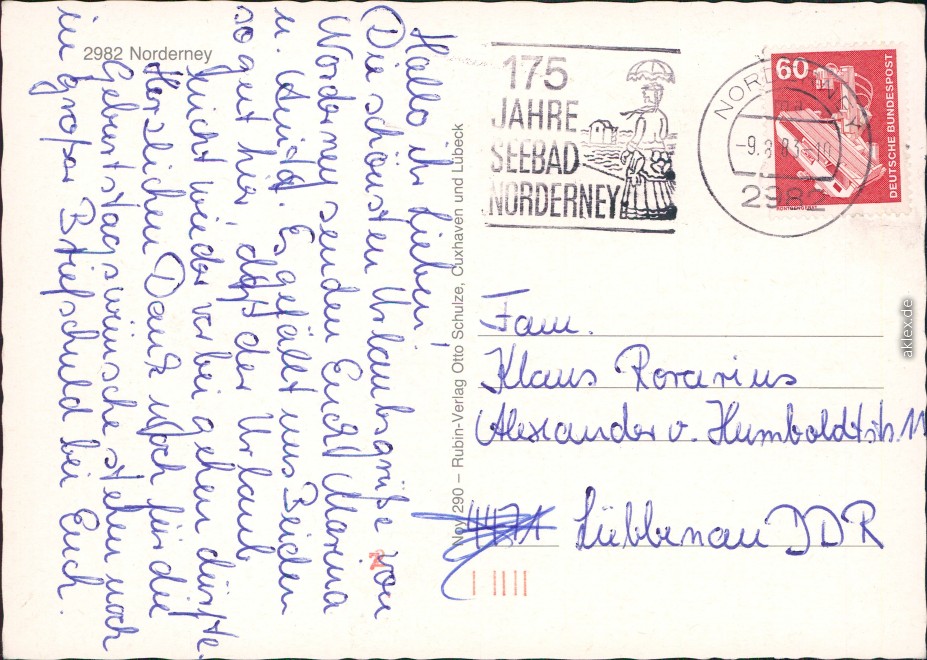 2982 Norderney
Hallo ihr Lieben!
Die schönsten Urlaubsgrüße von
Norderney senden Euch Marina
u. Es gefällt uns Beiden
so gut hier, daß der Urlaub
nicht wieder vorbei gehen dürfte.
Herzlichen Dank noch für die
Geburtstagswünsche stehen noch
in großer Briefschuld bei Euch.
Noy 290 – Rubin-Verlag Otto Schulze, Cuxhaven und Lübeck
175
JAHRE
SEEBAD
NORDERNEY
NORD
-9.8.8 -10
2982
60
DEUTSCHE BUNDESPOST
Fam.
Klaus Rorarius
Alexander v. Humboldtstr. 11
Lübbenau DDR
aklex.de